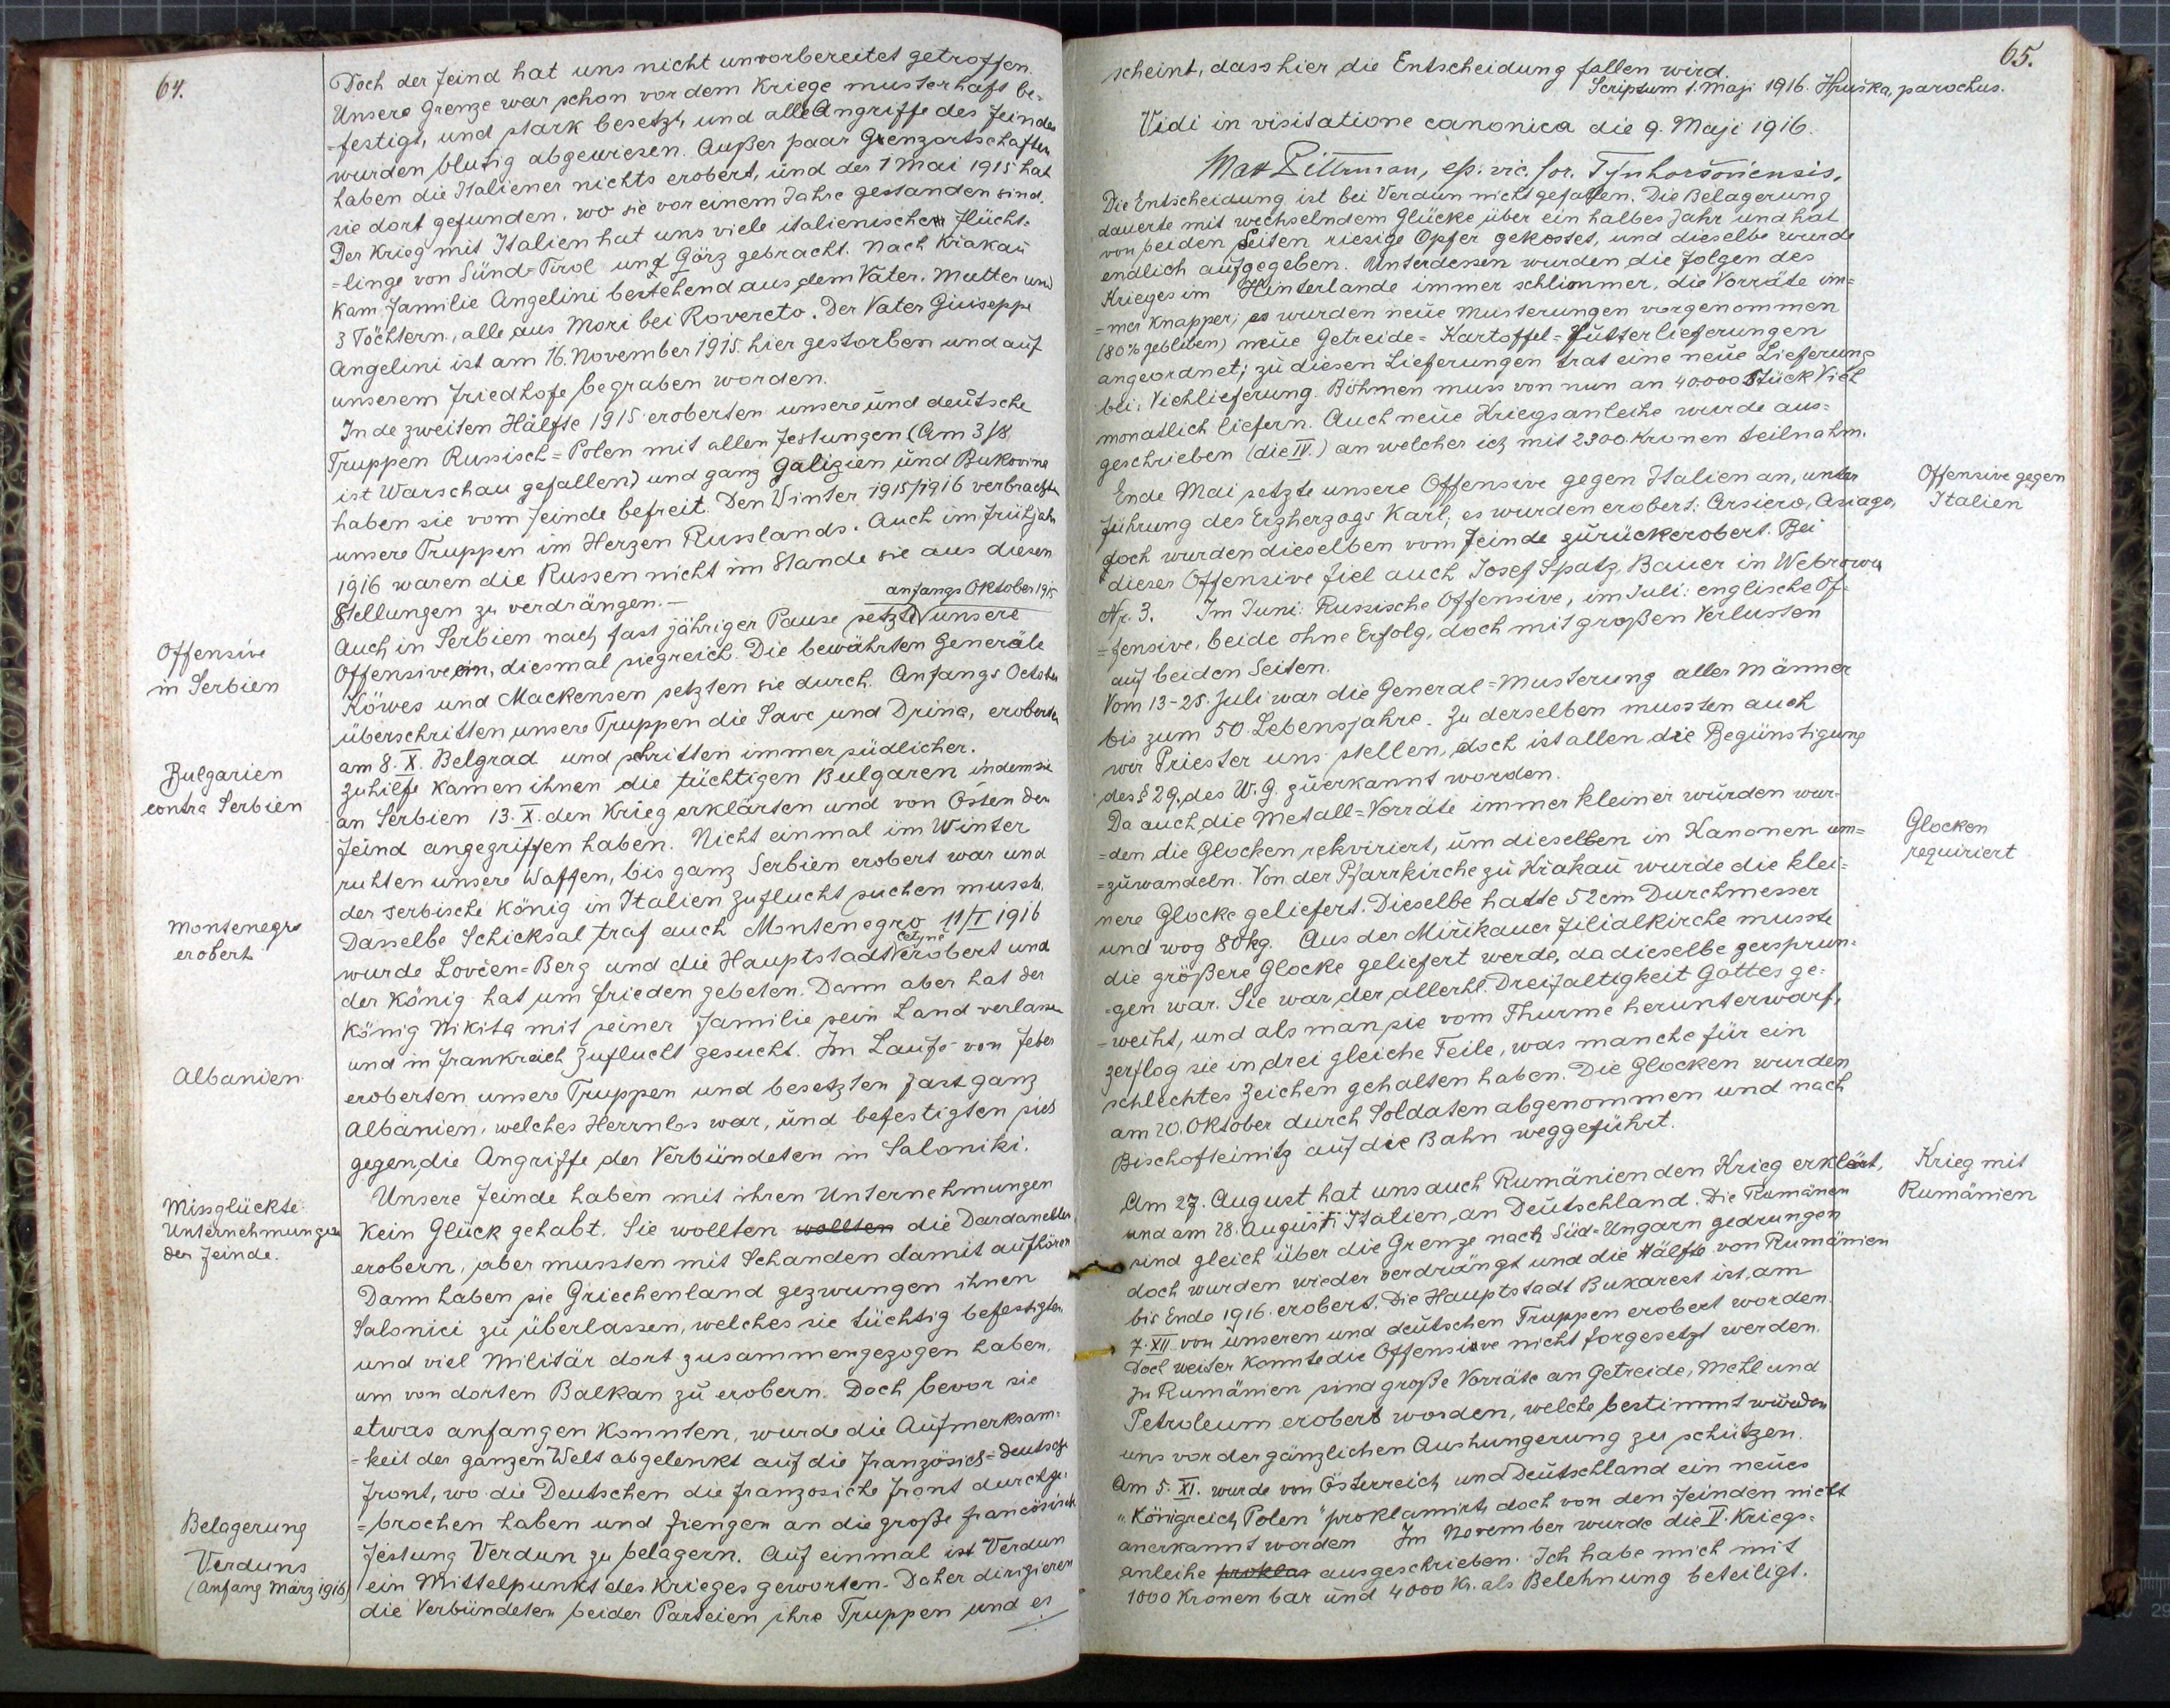 64.
Doch der Feind hat uns nicht unvorbereitet getroffen.
Unsere Grenze war schon vor dem Kriege musterhaft be-
=festigt, und stark besetzt, und alle Angriffe des Feindes
wurden blutig abgewiesen. Außer paar Grenzortschaften
haben die Italiener nichts erobert, und der 1 Mai 1915 hat
sie dort gefunden, wo sie vor einem Jahre gestanden sind.
Der Krieg mit Italien hat uns viele italienischen Flücht-
=linge von Sünd-Tirol und Görz gebracht. Nach Krakau
kam Familie Angelini bestehend aus dem Vater, Mutter und
3 Töchtern, alle aus Mori bei Rovereto. Der Vater Giuseppe
Angelini ist am 16. November 1915. hier gestorben und auf
unserem Friedhofe begraben worden.
In de zweiten Hälfte 1915 eroberten unsere und deutsche
Truppen Russisch=Polen mit allen Festungen (Am 3/8
ist Warschau gefallen) und ganz Galizien und Bukovina
haben sie vom Feinde befreit. Den Winter 1915/1916 verbrachten
unsere Truppen im Herzen Russlands. Auch im Frühjahr
1916 waren die Russen nicht im Stande sie aus diesen
Stellungen zu verdrängen.—
anfangs Oktober 1915
Auch in Serbien nach fast jähriger Pause setzte unsere
Offensive
in Serbien
Offensive ein, diesmal siegreich. Die bewährten Generäle
Köwes und Mackensen setzten sie durch. Anfangs October
überschritten unsere Truppen die Save und Drina, eroberten
am 8. X. Belgrad und schritten immer südlicher.
Bulgarien
contra Serbien
Zuhilfe kamen ihnen die tüchtigen Bulgaren indem sie
an Serbien 13. X. den Krieg erklärten und von Osten den
Feind angegriffen haben. Nicht einmal im Winter
ruhten unsere Waffen, bis ganz Serbien erobert war und
der serbische König in Italien Zuflucht suchen musste.
Montenegro
erobert
Dasselbe Schicksal traf auch Montenegro 11/I 1916
Cetyne
wurde Lovčen=Berg und die Hauptstadt erobert und
der König hat um Frieden gebeten. Dann aber hat der
König Nikita mit seiner Familie sein Land verlassen
und in Frankreich Zuflucht gesucht. Im Laufe von Feber
Albanien
eroberten unsere Truppen und besetzten fast ganz
Albanien, welches Herrnlos war, und befestigten sich
gegen die Angriffe der Verbündeten in Saloniki.
Missglückte
Unternehmungen
der Feinde.
Unsere Feinde haben mit ihren Unternehmungen
kein Glück gehabt. Sie wollten wollten die Dardanellen
erobern, aber mussten mit Schanden damit aufhören
Dann haben sie Griechenland gezwungen ihnen
Salonici zu überlassen, welches sie tüchtig befestigten
und viel Militär dort zusammengezogen haben,
um von dorten Balkan zu erobern. Doch bevor sie
etwas anfangen konnten, wurde die Aufmerksam=
=keit der ganzen Welt abgelenkt auf die Französich=deutsche
Front, wo die Deutschen die französiche Front durchge-
Belagerung
Verduns
(Anfang März 1916)
=brochen haben und fiengen an die große francösisch
Festung Verdun zu belagern. Auf einmal ist Verdun
ein Mittelpunkt des Krieges geworten. Daher dirigieren
die Verbündeten beider Parteien ihre Truppen und es
65.
scheint, dass hier die Entscheidung fallen wird.
Scriptum 1. Maji 1916. Hruška, parochus.
Vidi in visitatione canonica die 9. Maji 1916.
Matt Pittrman, ep. vic. for. Tynhoršoviensis.
Die Entscheidung ist bei Verdun nicht gefallen. Die Belagerung
dauerte mit wechselndem Glücke über ein halbes Jahr und hat
von beiden Seiten riesige Opfer gekostet, und dieselbe wurde
endlich aufgegeben. Unterdessen wurden die Folgen des
Krieges im Hinterlande immer schlimmer, die Vorräte im=
=mer knapper; es wurden neue Musterungen vorgenommen
(80% geblieben) neue Getreide=Kartoffel=Futterlieferungen
angeordnet; zu diesen Lieferungen trat eine neue Lieferung
bei: Viehlieferung. Böhmen muss von nun an 40.000 Stück Vieh
monatlich liefern. Auch neue Kriegsanleihe wurde aus=
geschrieben (die IV.) an welcher ich mit 2300 Kronen teilnahm.
Offensive gegen
Italien
Ende Mai setzte unsere Offensive gegen Italien an, unter
Führung des Erzherzogs Karl; es wurden erobert: Arsiero, Asiago,
doch wurden dieselben vom Feinde zurückerobert. Bei
dieser Offensive fiel auch Josef Spatz, Bauer in Webrowa
Nr. 3. Im Juni: Russische Offensive, im Juli: englische Of-
=fensive, beide ohne Erfolg, doch mit großen Verlusten
auf beiden Seiten.
Vom 13-25. Juli war die General=Musterung aller Männer
bis zum 50. Lebensjahre. Zu derselben mussten auch
wir Priester uns stellen, doch ist allen die Begünstigung
des § 29, des W.G. zuerkannt worden.
Glocken
requiriert
Da auch die Metall=Vorräte immer kleiner wurden wur-
=den die Glocken rekviriert, um dieselben in Kanonen um=
=zuwandeln. Von der Pfarrkirche zu Krakau wurde die klei=
nere Glocke geliefert. Dieselbe hatte 52 cm Durchmesser
und wog 80 kg. Aus der Miřikauer Filialkirche musste
die größere Glocke geliefert werde, da dieselbe zersprun=
=gen war. Sie war der allerhl. Dreifaltigkeit Gottes ge=
=weiht, und als man sie vom Thurme herunterwarf,
zerflog sie in drei gleiche Teile, was manche für ein
schlechtes Zeichen gehalten haben. Die Glocken wurden
am 20. Oktober durch Soldaten abgenommen und nach
Bischofteinitz auf die Bahn weggeführt.
Krieg mit
Rumänien
Am 27. August hat uns auch Rumänien den Krieg erklärt,
und am 28. August Italien an Deutschland. Die Rumänen
sind gleich über die Grenze nach Süd-Ungarn gedrungen
doch wurden wieder verdrängt und die Hälfte von Rumänien
bis Ende 1916 erobert. Die Hauptstadt Bukarest ist am
7. XII von unseren und deutschen Truppen erobert worden.
Doch weiter konnte die Offensive nicht forgesetzt werden.
In Rumänien sind große Vorräte an Getreide, Mehl und
Petroleum erobert worden, welche bestimmt wurden
uns vor der gänzlichen Aushungerung zu schützen.
Am 5. XI. wurde von Österreich und Deutschland ein neues
"Königreich Polen" proklamirt, doch von den Feinden nicht
anerkannt worden Im November wurde die V. Kriegs=
anleihe proklar ausgeschrieben. Ich habe mich mit
1000 Kronen bar und 4000 Kr. als Belehnung beteiligt.